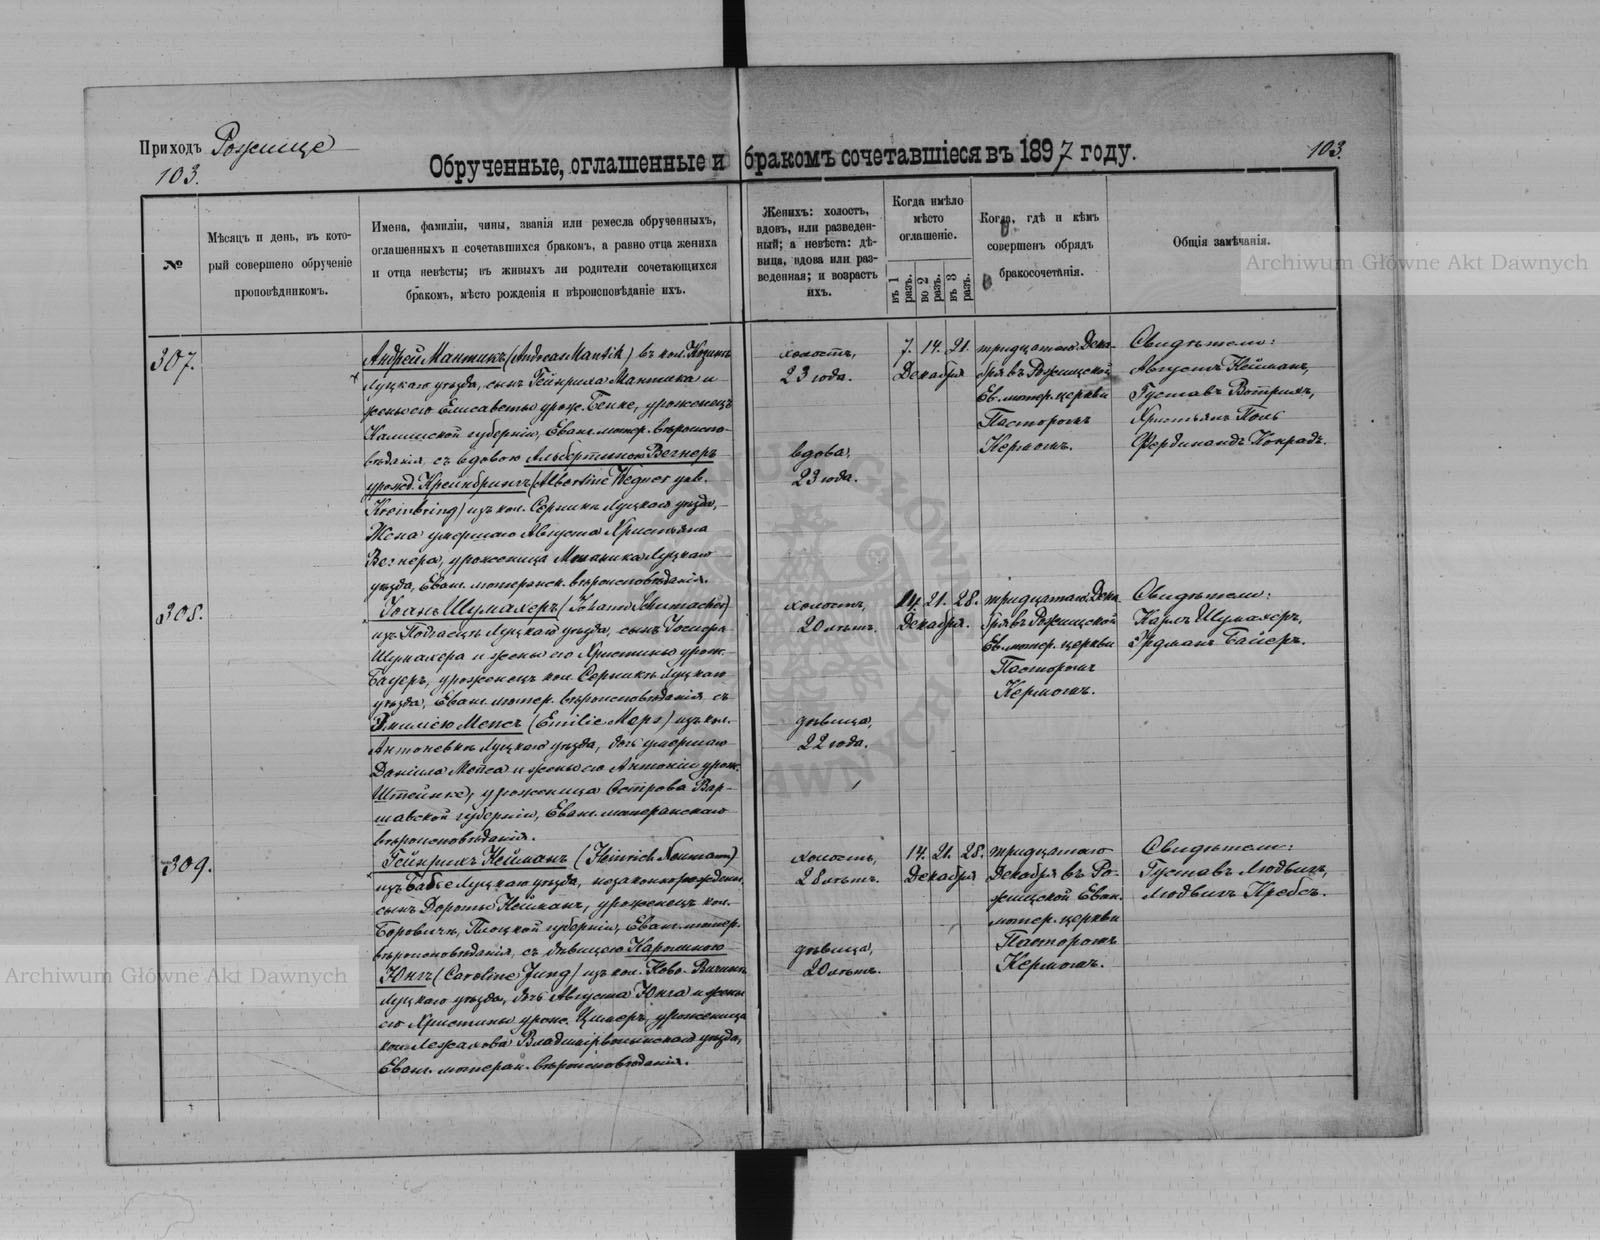 Приходъ Рожище
103.
Обрученные, оглашенные и бракомъ сочетавшіеся въ 1897 году.
103.
№
Мѣсяцъ и день, въ кото-
рый совершено обрученіе
проповѣдникомъ.
Имена, фамиліи, чины, званія или ремесла обрученныхъ,
оглашенныхъ и сочетавшихся бракомъ, а равно отца жениха
и отца невѣсты; въ живыхъ ли родители сочетающихся
бракомъ, мѣсто рожденія и вѣроисповѣданіе ихъ.
Женихъ: холостъ,
вдовъ, или разведен-
ный; а невѣста: дѣ-
вица, вдова или раз-
веденная; и возрастъ
ихъ.
Когда имѣло
мѣсто
оглашеніе.
въ 1 разъ.
во 2 разъ.
въ 3 разъ.
Когда, гдѣ и кѣмъ
совершенъ обрядъ
бракосочетанія.
Общія замѣчанія.
307.
Андрей Мантикъ (Andreas Mantik) въ кол.
Луцкаго уѣзда, сынъ Гейнриха Мантика и
жены его Елисаветы урож. Генке, уроженецъ
Калишской губерніи, Еванг. лютер. вѣроиспо-
вѣданія, съ вдовою Альбертиною Вегнеръ
урожд. Крейнбрингъ (Albertine Wegner geb.
Kreinbring) изъ кол. Серникъ Луцкаго уѣзда,
Жена умершаго Августа Христьяна
Вегнера, уроженица Луцкаго
уѣзда, Еван. лютеранск. вѣроисповѣданія.
холостъ,
23 года.
вдова,
23 года.
7. 14. 21.
Декабря
тридцатаго Дека-
бря въ Рожищской
Ев. лютер. церкви
Пасторомъ
Кермомъ.
Свидѣтели:
Августъ Нейманъ,
Густавъ
Христьянъ Поль
Фердинандъ Конрадъ.
308.
Іоанъ Шумахеръ (Johann Schumacher)
изъ Луцкаго уѣзда, сынъ Іосифа
Шумахера и жены его Христины урож.
Бауеръ, уроженецъ кол. Серникъ Луцкаго
уѣзда, Еванг. лютер. вѣроисповѣданія, съ
Эмилiею Мепсъ (Emilie Meps) изъ кол.
Антоневки Луцкаго уѣзда, дочь умершаго
Даніила Мепса и жены его Антоніи урож.
Штейнке, уроженица Острова Вар-
шавской губерніи, Еванг. лютеранскаго
вѣроисповѣданія.
холостъ,
20 лѣтъ.
дѣвица,
22 года.
14. 21. 28.
Декабря.
тридцатаго Дека-
бря въ Рожищской
Ев. лютер. церкви
Пасторомъ
Кермомъ.
Свидѣтели:
Карлъ Шумахеръ,
Эрдманъ Байеръ.
309.
Гейнрихъ Нейманъ (Heinrich Neumann)
изъ Луцкаго уѣзда, незаконнорожденный
сынъ Дороты Нейманъ, уроженецъ кол.
Боровичъ, Плоцкой губерніи, Еванг. лютер.
вѣроисповѣданія, съ дѣвицею Каролиною
Юнгъ (Caroline Jung) изъ кол. Ново-
Луцкаго уѣзда, дочь Августа Юнга и жены
его Христины урож. уроженица
кол. Владимірволынскаго уѣзда,
Еванг. лютеран. вѣроисповѣданія.
холостъ,
28 лѣтъ.
дѣвица,
20 лѣтъ.
14. 21. 28.
Декабря
тридцатаго
Декабря въ Ро-
жищской Еван.
лютер. церкви
Пасторомъ
Кермомъ.
Свидѣтели:
Густавъ Людвигъ,
Людвигъ Кребсъ.
Archiwum Główne Akt Dawnych
Archiwum Główne Akt Dawnych